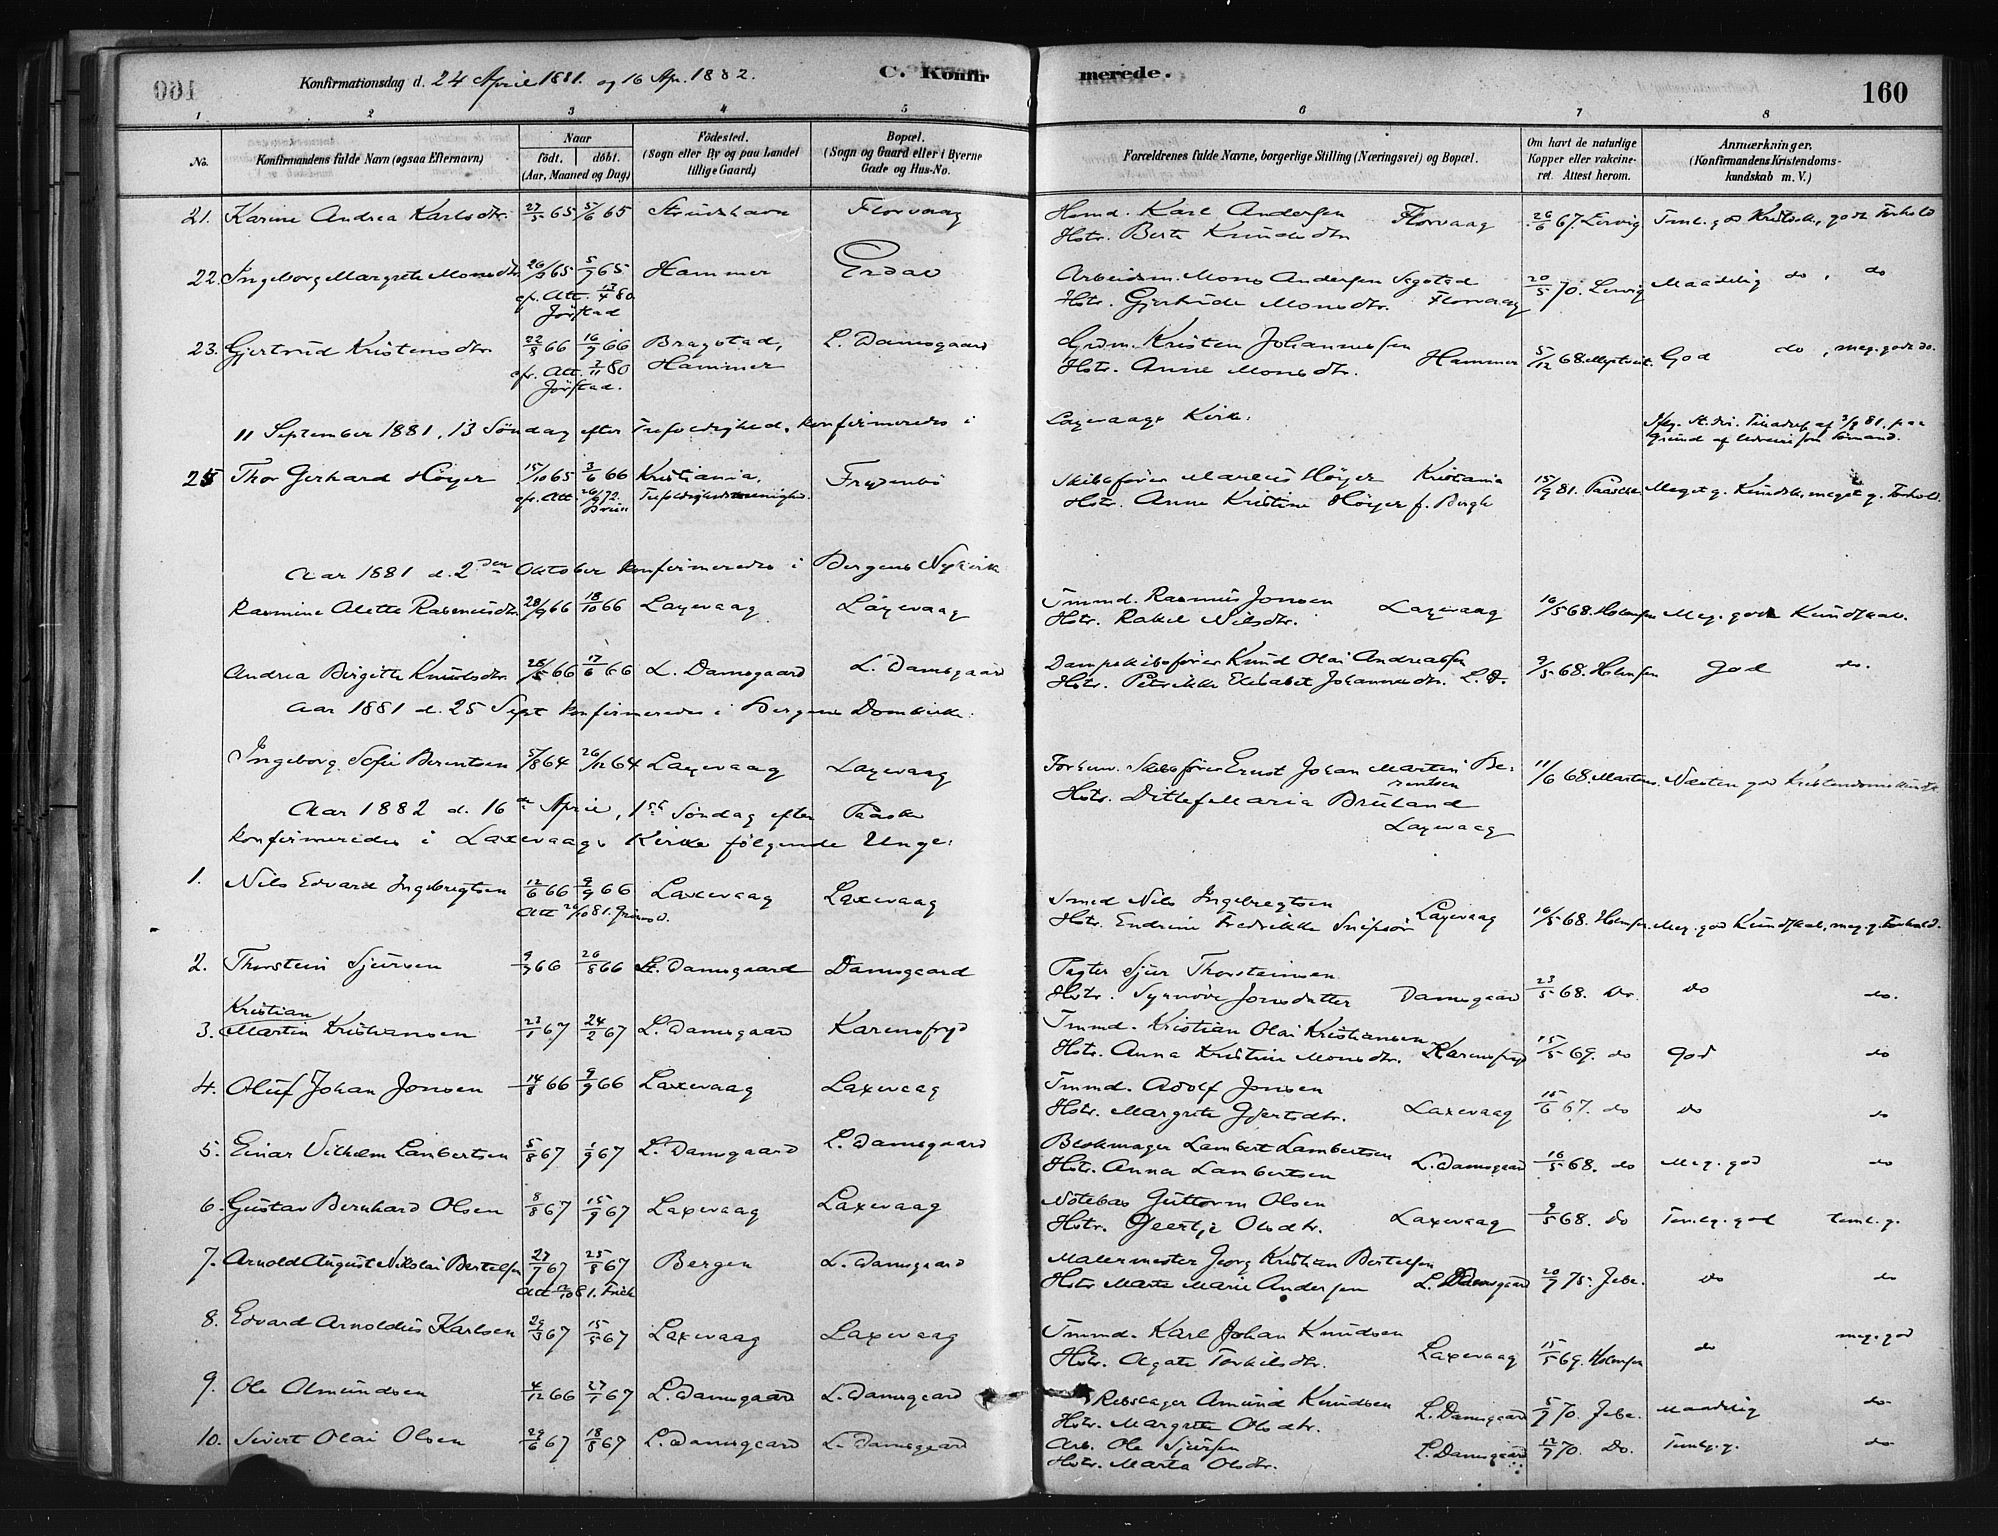 Konfirmationsdag d. 24 April 1881. og 16 Ap. 1882. C. Konfirmerede. 160
1 2 3 4 5 6 7 8
No. Konfirmandens fulde Navn (ogsaa Efternavn) Naar født. døbt. (Aar, Maaned og Dag) Fødested. (Sogn eller By og paa Landet tillige Gaard) Bopæl. (Sogn og Gaard eller i Byerne Gade og Hus-No. Forældrenes fulde Navne, borgerlige Stilling (Næringsvei) og Bopæl. Om havt de naturlige Kopper eller vakcineret. Attest herom. Anmærkninger. (Konfirmandens Kristendomskundskab m. V.)
21. Karine Andrea Karlsdtr. 27/5 65 5/6 65 Strudshavn Florvaag Hsmd. Karl Andersen Florvaag 26/6 67. Lervig Teml. god Kristdsk., godt Forhold
Hstr. Berte Knudsdtr
22. Ingeborg Margrete Monsdtr. 65 5/7 65 Hammer Erdal Arbeidsm. Mons Andersen Segstad 20/5 70. Lervig Maadelig do, do
cfr. Att. 13/4 80 Hstr. Gjertrude Monsdtr. Florvaag
Jørstad
23. Gjertrud Kristensdtr. 22/8 66 16/9 66 Bragstad, L. Damsgaard Grdm. Kristen Johannessen Hammer 5/12 68. God do, meg. godt do.
cfr. Att. 2/11 80 Hammer Hstr. Anne Monsdtr.
Jørstad.
11 September 1881, 13 Søndag efter Trefoldighed, konfirmeredes i Laxevaags Kirke:
25 Thor Gerhard Höyer 15/10 65 3/6 66 Kristiania, Frydenbö Skibsfører Marcus Höyer Kristiania 15/9 81. Paasche. Meget g. Kundsk., meget g. Forhold.
cfr. Att. Trefoldighedsmenighed. Hstr. Anne Kristine Höyer f. Bergh
Aar 1881 d. 2den Oktober konfirmeredes i Bergens Nykirke
Rasmine Alette Rasmusdtr. 28/9 66 18/10 66 Laxevaag Laxevaag Tmmd. Rasmus Jonsen Laxevaag 16/5 68. Holmsen Meg. god Kundskab.
Hstr. Rakel Nilsdtr.
Andrea Birgitte Knudsdtr. 28/5 66 17/6 66 L. Damsgaard L. Damsgaard Dampskibsfører Knud Olai Andreassen 9/5 68. Holmsen god do.
Hstr. Petrikke Elisabet Johannesdtr. L. D.
Aar 1881 d. 25 Sept konfirmeredes i Bergens Domkirke:
Ingeborg Sofie Berentsen 5/8 64 26/12 64 Laxevaag Laxevaag Forhenv. Skibsfører Ernst Johan Martin Berentsen 11/6 68. Martens. Næsten god Kristendomskundsk.
Hstr. Ditlef Maria Bruland
Laxevaag
Aar 1882 d. 16de April, 1ste Søndag efter Paaske
konfirmeredes i Laxevaags Kirke følgende Unge:
1. Nils Edvard Ingebregtsen 12/6 66 9/9 66 Laxevaag Laxevaag Smed Nils Ingebregtsen Laxevaag 16/5 68. Holmsen. Meg. god Kundskab, meg. g. Forhold.
Att 26/10 81. Hstr. Endrine Fredrikke
2. Thorstein Sjursen 66 26/8 66 L. Damsgaard Damsgaard Pagter Sjur Thorsteinsen 23/5 68. Do. do do.
Hstr. Synnöve Jonsdatter Damsgaard
3. Kristian Martin Kristiansen 23/1 67 24/2 67 L. Damsgaard Karensfryd Tmmd. Kristian Olai Kristiansen 15/5 69. do god do
Hstr. Anna Kristine Monsdtr. Karensfryd
4. Oluf Johan Jonsen 14/8 66 9/9 66 Laxevaag Laxevaag Tmmd. Adolf Jonsen
Hstr. Margrete Gjertsdtr. Laxevaag 15/6 67. do do do
5. Einar Vilhelm Lambertsen 5/8 67 1/9 67 L. Damsgaard L. Damsgaard Blokmager Lambert Lambertsen
Hstr. Anna Lambertsen L. Damsgaard 16/5 68. do Meg. god do
6. Gustav Bernhard Olsen 8/8 67 15/9 67 Laxevaag Laxevaag Notebas Guttorm Olsen
Hstr. Geertje Olsdtr. Laxevaag 9/5 68. do Temlig. god temlig.
7. Arnold August Nikolai Bertelsen 27/7 67 25/8 67 Bergen L. Damsgaard Malermester Georg Kristian Bertelsen
Att 81. Frich Hstr. Marta Marie Andersen L. Damsgaard 20/7 75. Jebe. do do
8. Edvard Arnoldus Karlsen 29/3 67 15/5 67 Laxevaag Laxevaag Tmmd. Karl Johan Knudsen
Hstr. Agate Torkilsdtr. Laxevaag 15/5 69. Holmsen do meg. god
9. Ole Amundsen 4/12 66 27/1 67 L. Damsgaard L. Damsgaard Rebslager Amund Knudsen
Hstr. Margrete Olsdtr. L. Damsgaard 5/7 70. Jebe. Maadelig do
10. Sivert Olai Olsen 29/6 67 18/8 67 L. Damsgaard L. Damsgaard Arb. Ole Sjursen
Hstr. Marta Olsdtr. L. Damsgaard 12/7 70. Do. Temlig. do